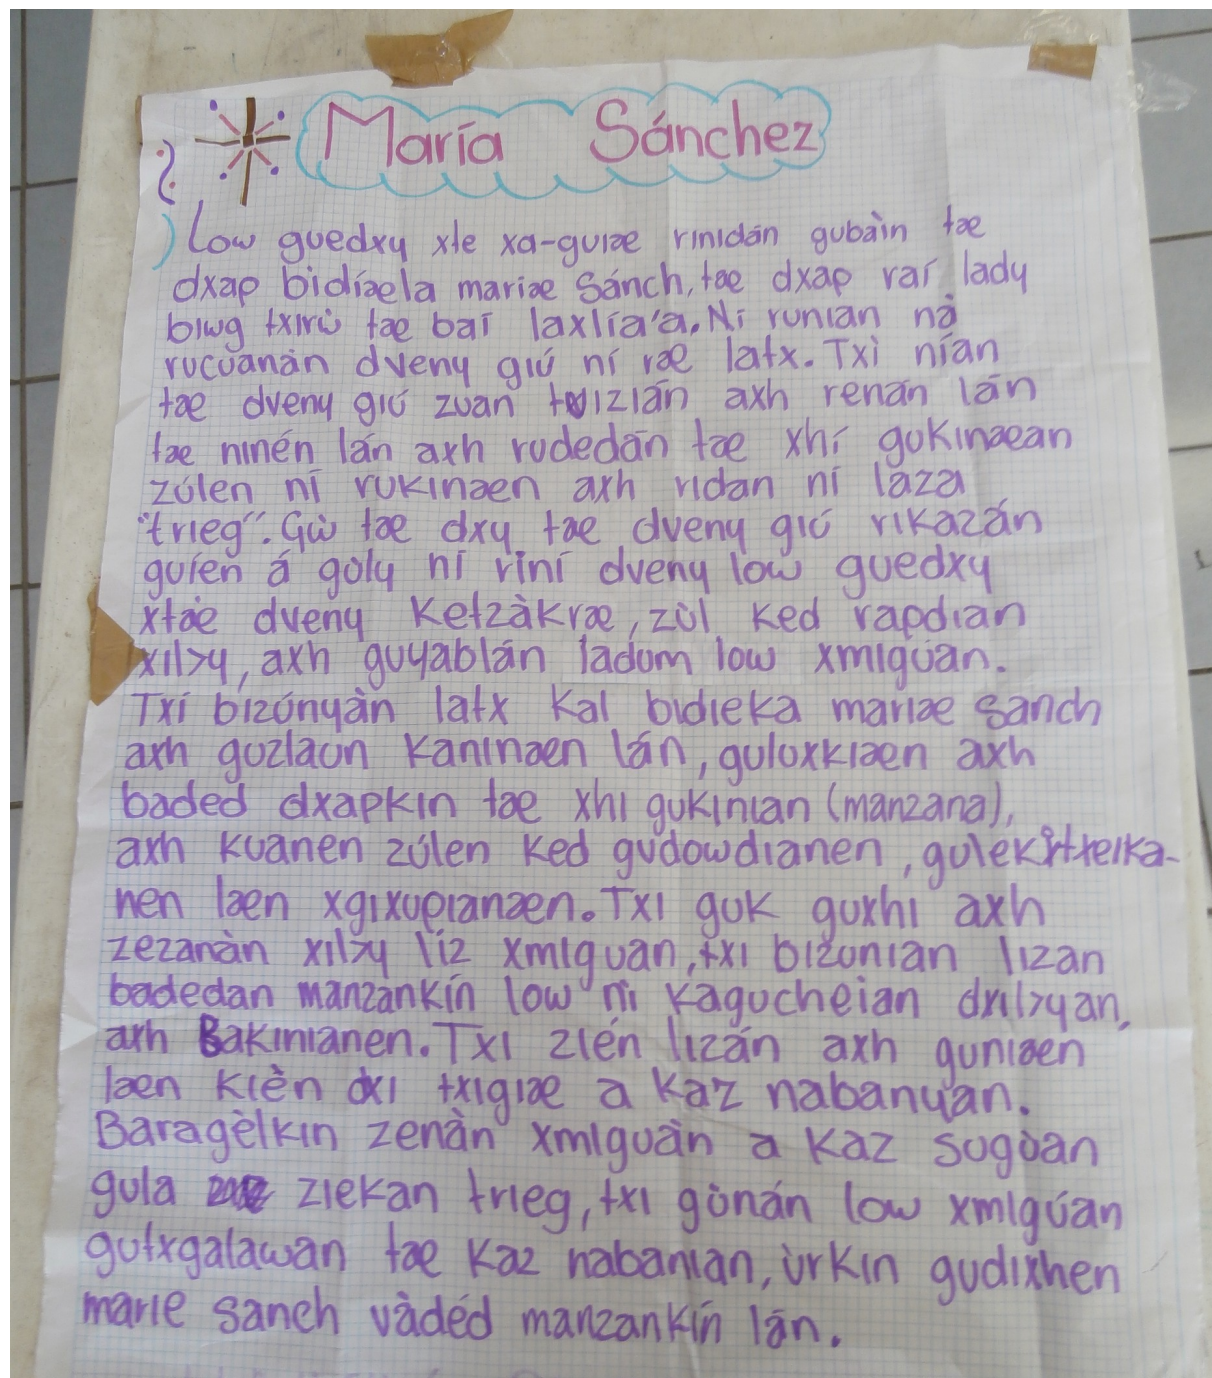 María Sánchez
Low guedxy xte xa-guize rinidán gubàin tae
dxap bidíaela mariae Sánch, tae dxap raí lady
biwg txirù tae baí laxlía'a. Ní runian nà
rucuanàn dveny giú ní rae latx. Txì nían
tae dveny giú zuan twizián axh renán lán
tae ninén lán axh rudedān tae xhí gukinaean
zúlen ní rukinaen axh ridan ní laza
"trieg". Gù tae dxy tae dveny giú rikazán
guíen á goly ní riní dveny low guedxy
xtae dveny Ketzàkrae, zùl ked rapdian
xil>y, axh guyablán ladom low xmiguan.
Txí bizúnyàn latx Kal bidieka mariae sanch
axh guzlaun kaninaen lán, guluxkiaen axh
baded dxapkin tae xhi gukinian (manzana),
axh kuanen zúlen ked gudowdianen, gulekitxeika-
nen laen xgixupianaen. Txi guk guxhi axh
zezanàn xil>y líz xmiguan, txi bizunian lizan
badedan manzankín low ni kagucheian dxil>yan,
axh Bakinianen. Txi zién lizán axh guniaen
laen kièn dxi txigiae a kaz nabanyan.
Baragèlkin zenàn xmiguàn a kaz sugùan
gula ziekan trieg, txi gùnán low xmigúan
gutxgalawan tae kaz nabanian, ùrkin gudixhen
marie sanch vàdéd manzankín lán.